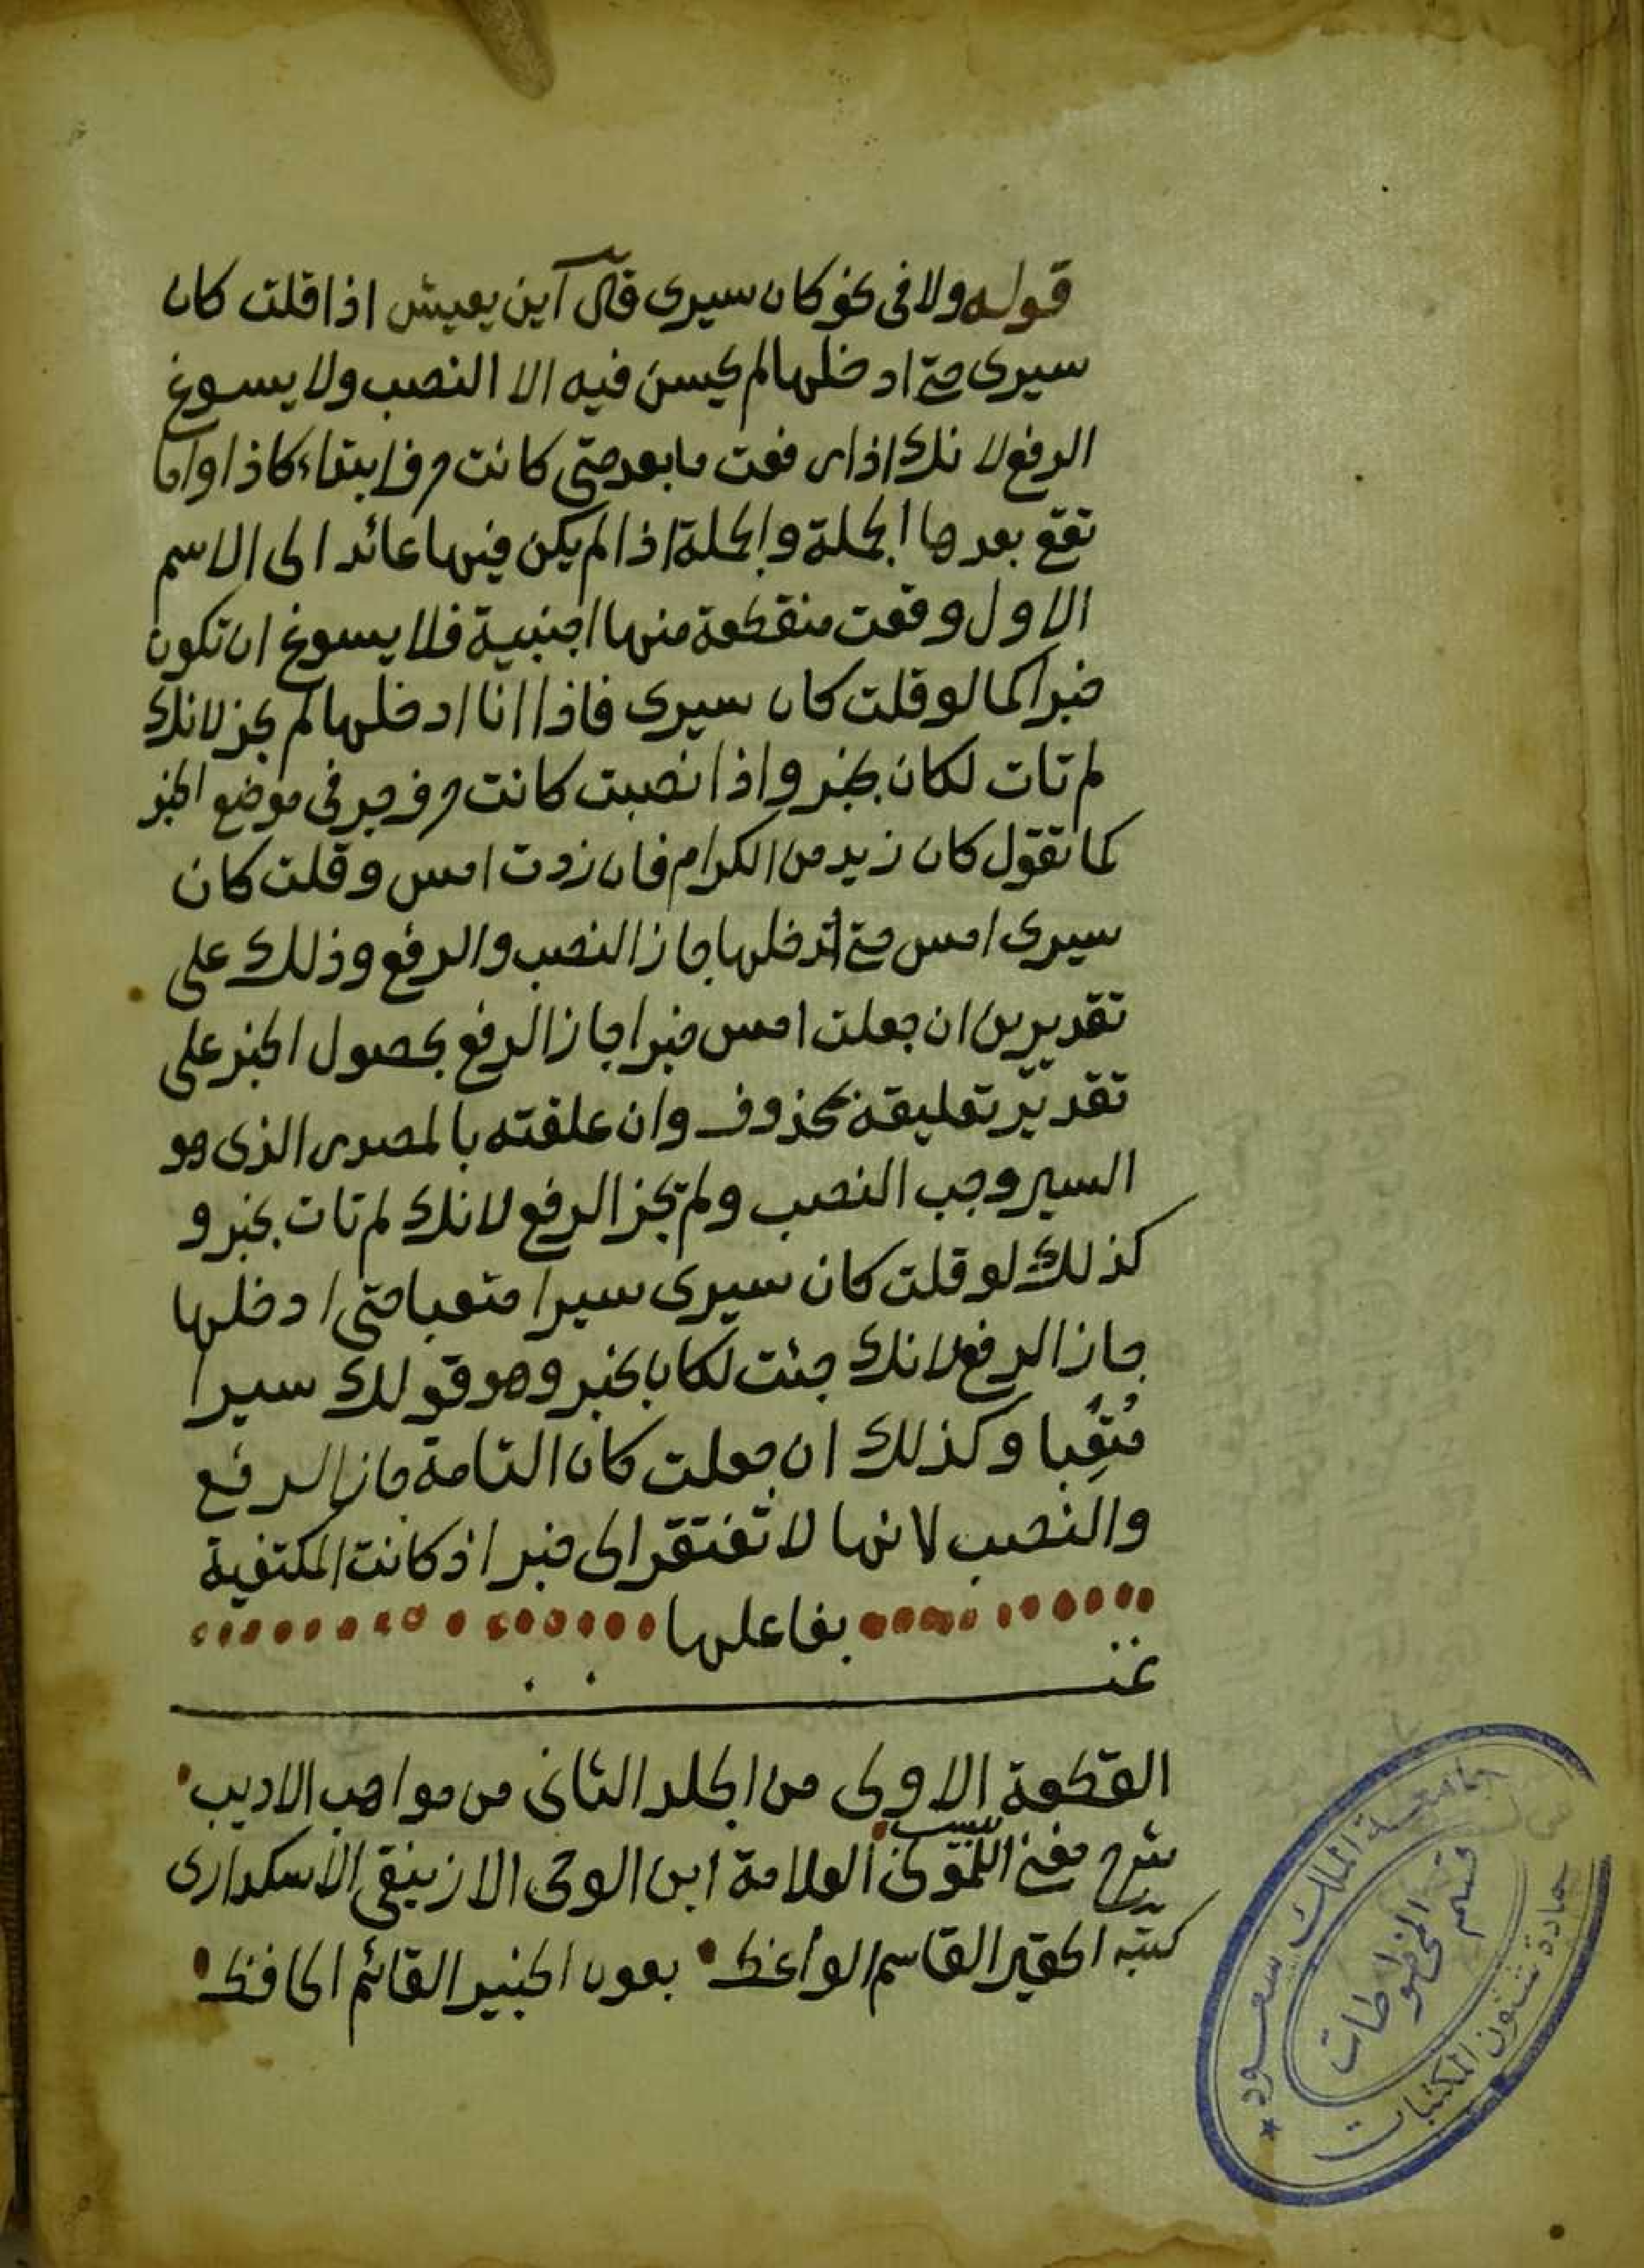 قوله ولا فى نحو كان سيرى قال ابن يعيش اذا قلت كان
سيرى حتى ادخلها لم يحسن فيه الا النصب ولا يسوغ
الرفع لانك اذا رفعت ما بعد حتى كانت حرف ابتداء كاذا واما
تقع بعدها الجملة والجملة اذا لم يكن فيها عائد الى الاسم
الاول وقعت منقطعة منها اجنبية فلا يسوغ ان تكون
خبرا كما لو قلت كان سيرى فاذا انا ادخلها لم يجز لانك
لم تات لكان بخبر واذا نصبت كانت حرف جر فى موضع الخبر
كما تقول كان زيد من الكرام فان زدت امس وقلت كان
سيرى امس حتى ادخلها جاز النصب والرفع وذلك على
تقديرين ان جعلت امس خبرا جاز الرفع بحصول الخبر على
تقدير تعليقه بمحذوف وان علقته بالمصدر الذى هو
السير وجب النصب ولم يجز الرفع لانك لم تات بخبر و
كذلك لو قلت كان سيرى سيرا متعبا حتى ادخلها
جاز الرفع لانك جئت لكان بالخبر وهو قولك سيرا
مُتعِبا وكذلك ان جعلت كان التامة جاز الرفع
والنصب لانها لا تفتقر الى خبر اذ كانت المكتفية
بفاعلها
القطعة الاولى من المجلد الثانى من مواهب الاديب
شرح مغنى اللبيب العلامة ابن الوحى الازنيقى الاسكدارى
كتبه الحقير القاسم الواعظ بعون الخبير القائم الحافظ
جامعة الملك سعود
قسم المخطوطات
عمادة شئون المكتبات